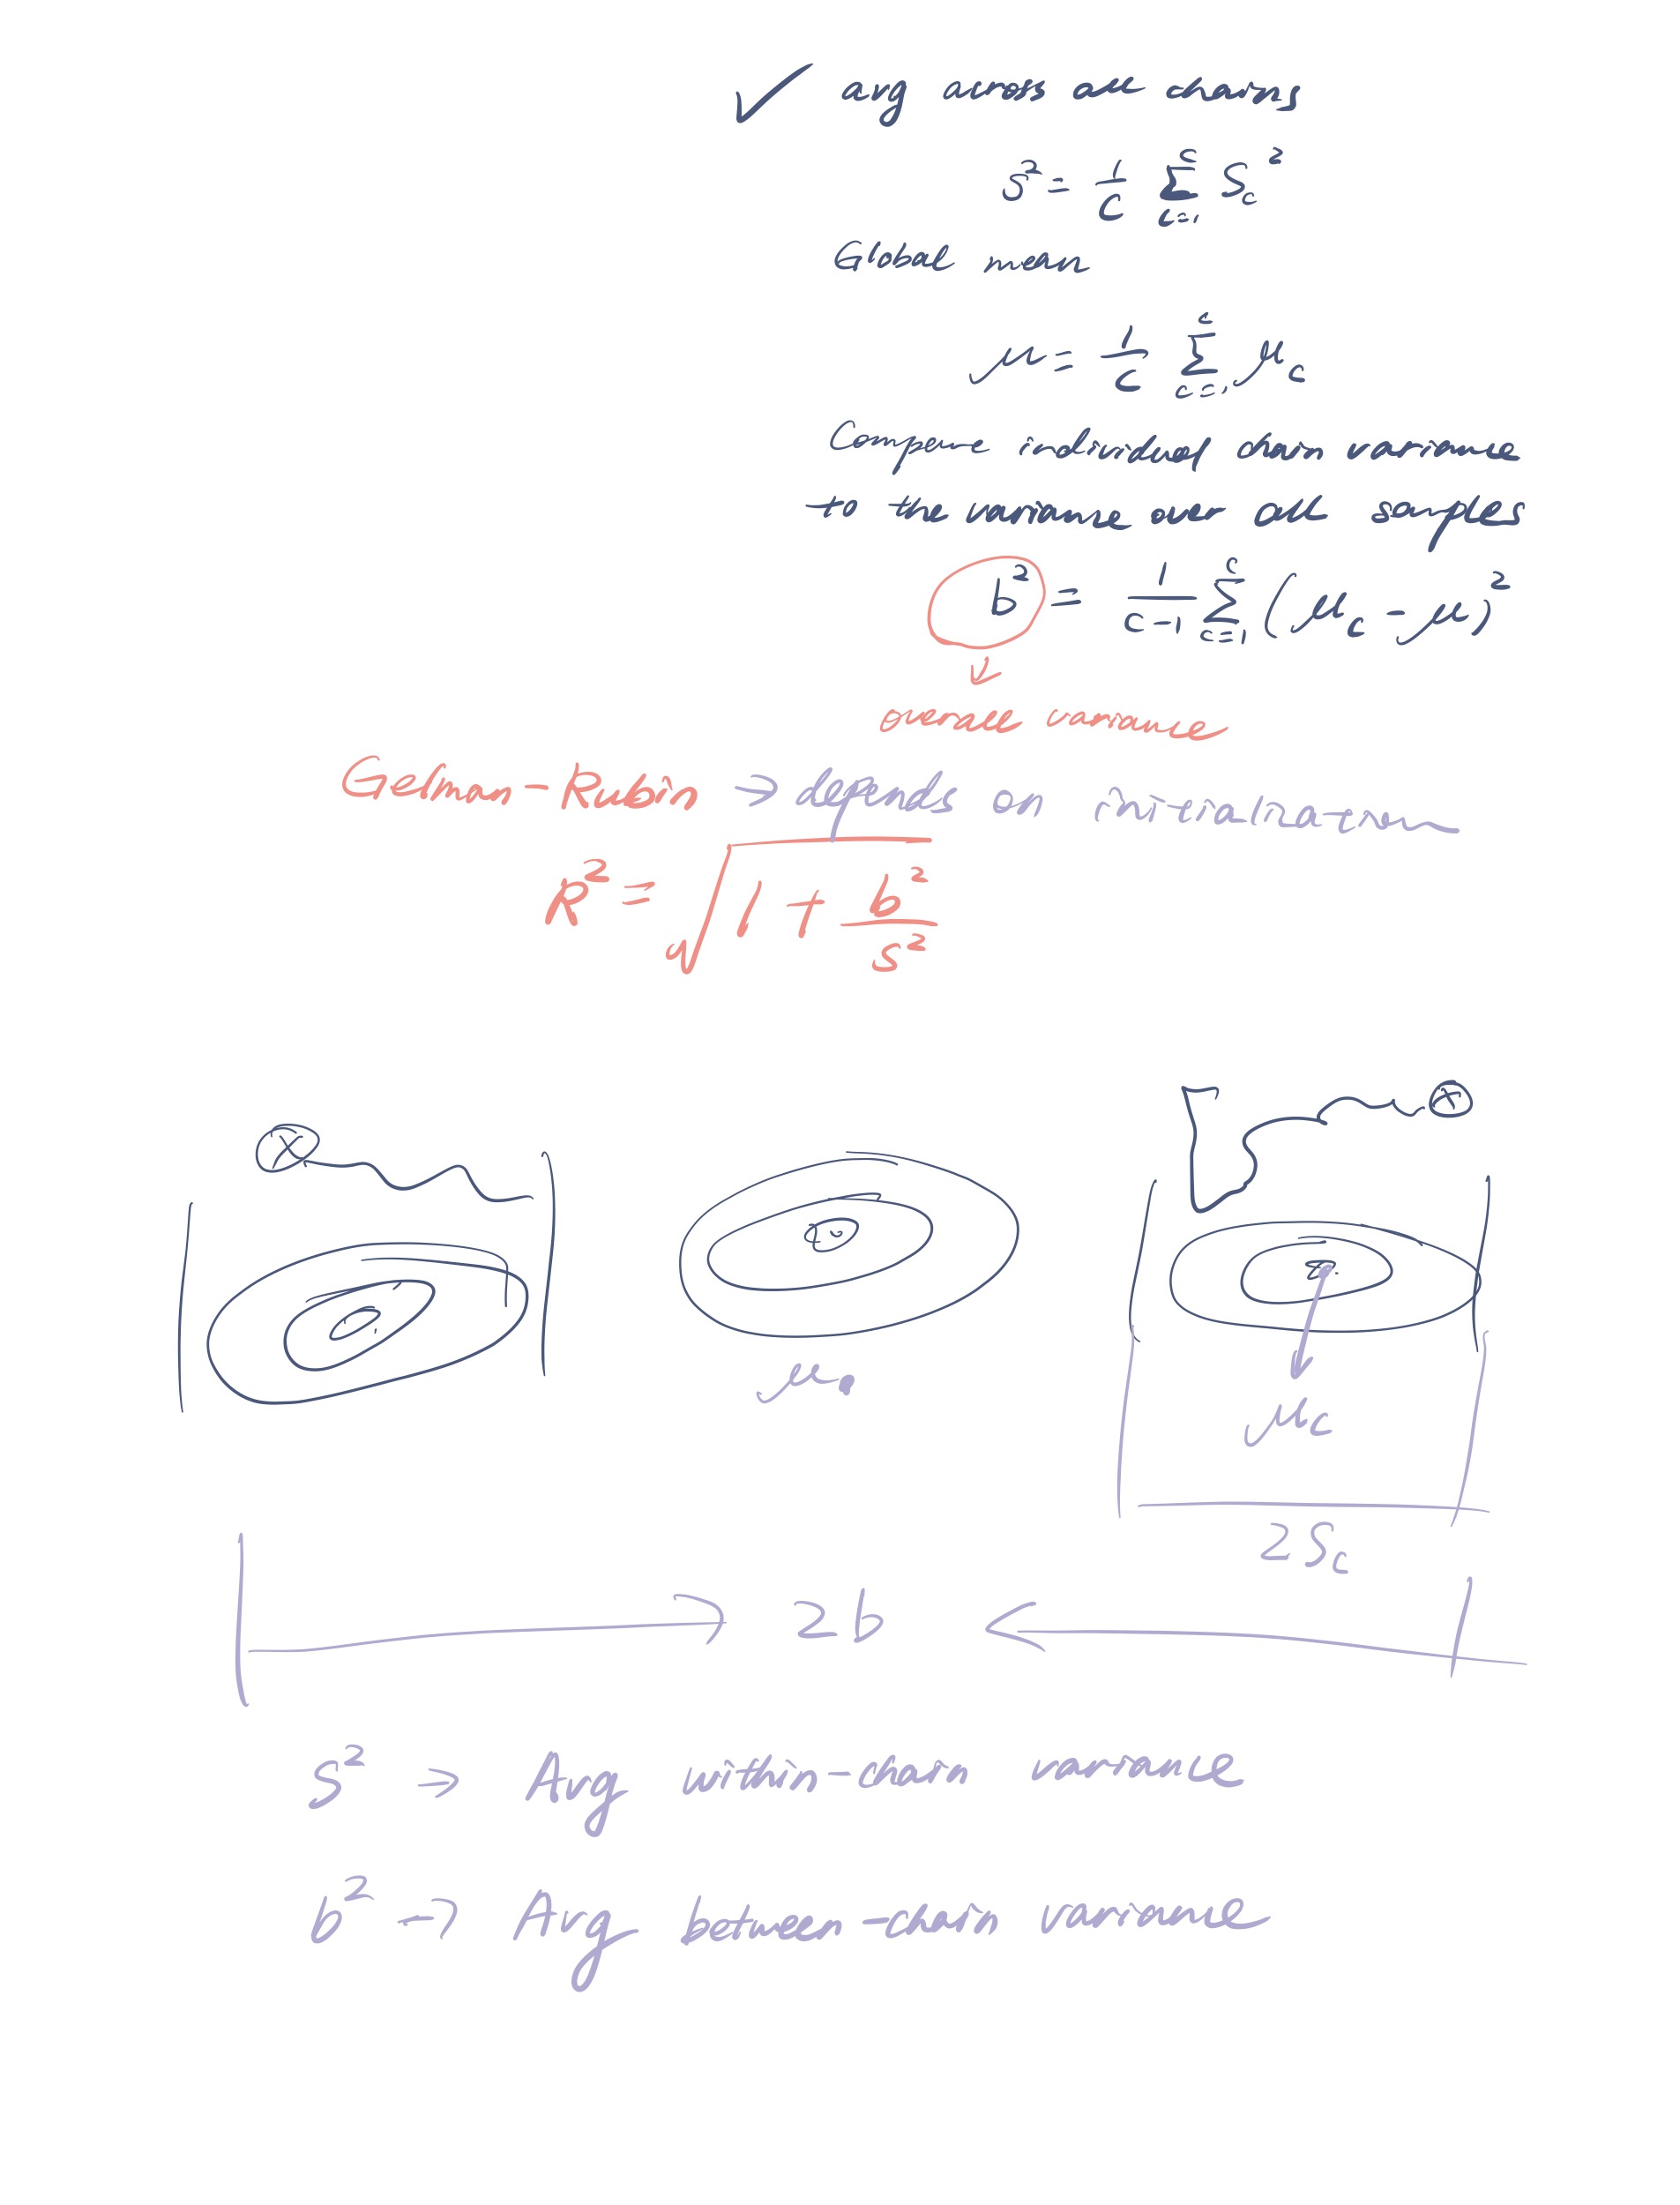 ✓ avg across all chains
s² = 1/c Σ_{c=1}^{c} S_c²
Global mean
μ = 1/c Σ_{c=1}^{c} μ_c
Compare individual chain variance
to the variance over all samples
b² = 1/(c-1) Σ_{c=1}^{c} (μ_c - μ)²
overall variance
Gelman-Rubin → depends on initialination
R² = √(1 + b²/s²)
X
X
μ.
μ_c
2S_c
2b
s² → Avg within-chain variance
b² → Avg between-chain variance